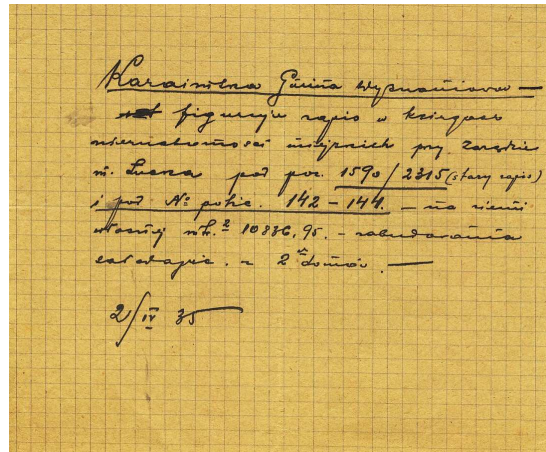 Karaimska Gmina Wyznaniowa —
figuruje zapis w księgach
nieruchomości miejskich przy Zarządzie
m. Łucka pod poz. 1590/2315 (stary zapis)
i pod № polic. 142 – 144. — na ziemi
własnej mtr.² 10836,95. – zabudowania
z 2 domów. —
2/IV 35